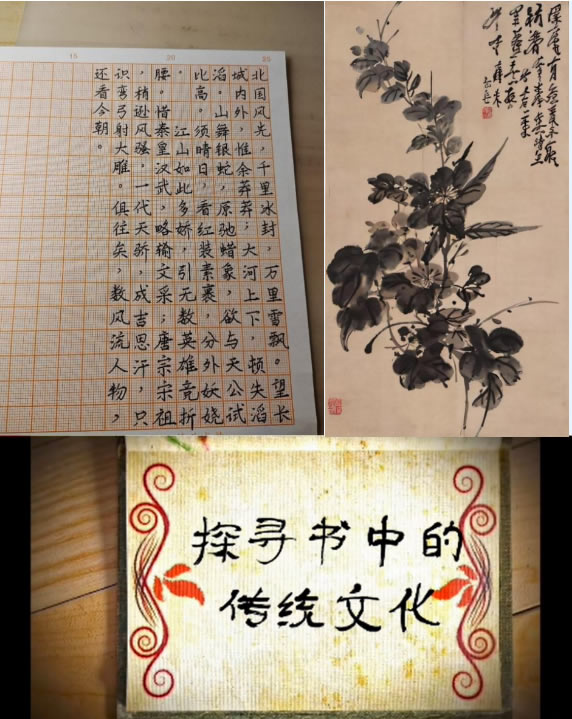 15 20 25
北国风光，千里冰封，万里雪飘。望长
城内外，惟余莽莽，大河上下，顿失滔
滔。山舞银蛇，原驰蜡象，欲与天公试
比高。须晴日，看红装素裹，分外妖娆
。江山如此多娇，引无数英雄竞折
腰。惜秦皇汉武，略输文采；唐宗宋祖
，稍逊风骚。一代天骄，成吉思汗，只
识弯弓射大雕。俱往矣，数风流人物，
还看今朝。
探寻书中的
传统文化